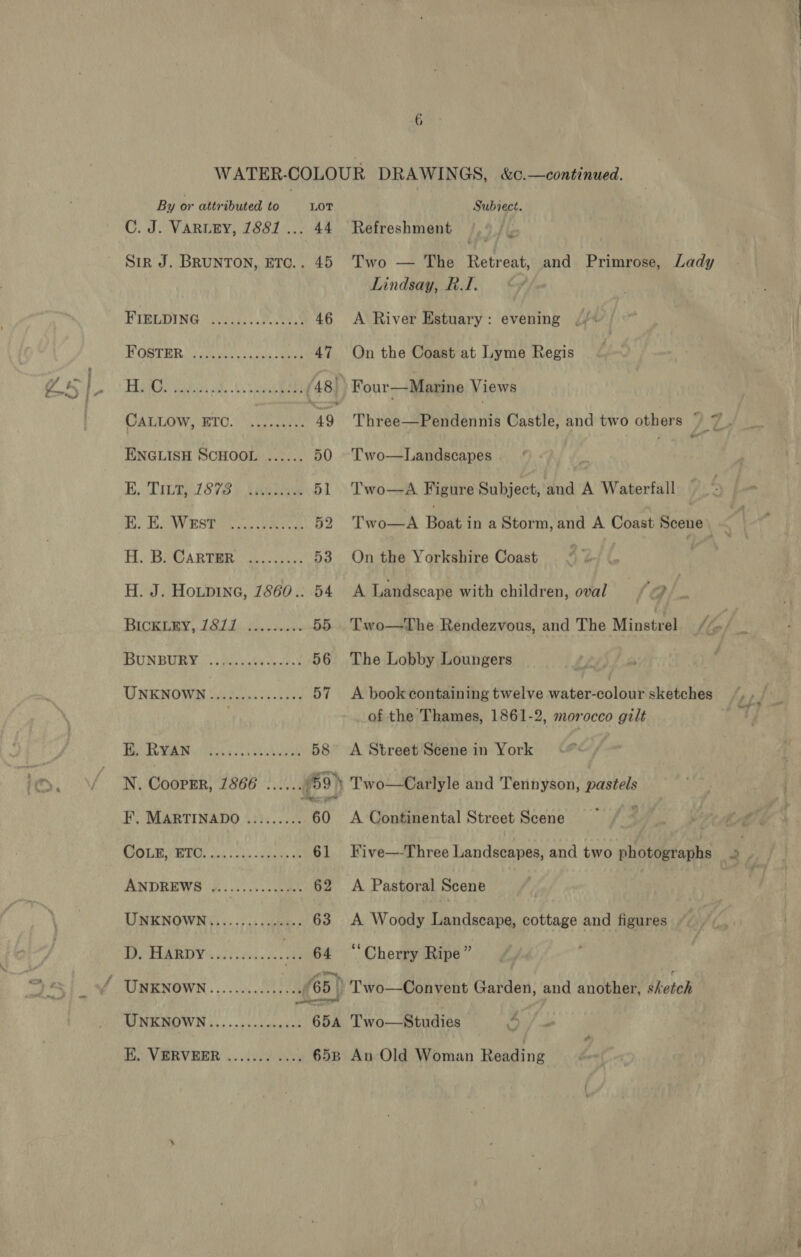 6
WATER-COLOUR DRAWINGS, &c.—continued.
By or attributed to LOT Subject.
C. J. VARLEY, 1881 ... 44 Refreshment
SIR J. BRUNTON, ETC.. 45 Two — The Retreat, and Primrose, Lady
Lindsay, R.I.
FIELDING ............... 46 A River Estuary : evening
FOSTER .................. 47 On the Coast at Lyme Regis
H. C. ..................... 48 Four—Marine Views
CALLOW, ETC. ......... 49 Three—Pendennis Castle, and two others
ENGLISH SCHOOL ...... 50 Two—Landscapes
E. TILT, 1873 ......... 51 Two—A Figure Subject, and A Waterfall
E. E. WEST ............ 52 Two—A Boat in a Storm, and A Coast Scene
H. B. CARTER ......... 53 On the Yorkshire Coast
H. J. HOLDING, 1860.. 54 A Landscape with children, oval
BICKLEY, 1811 ......... 55 Two—The Rendezvous, and The Minstrel
BUNBURY ............... 56 The Lobby Loungers
UNKNOWN ............... 57 A book containing twelve water-colour sketches
of the Thames, 1861-2, morocco gilt
E. RYAN .................. 58 A Street Scene in York
N. COOPER, 1866 ...... 59 Two—Carlyle and Tennyson, pastels
F. MARTINADO ......... 60 A Continental Street Scene
COLE, ETC. ............... 61 Five—Three Landscapes, and two photographs
ANDREWS ............... 62 A Pastoral Scene
UNKNOWN ............... 63 A Woody Landscape, cottage and figures
D. HARDY ............... 64 "Cherry Ripe"
UNKNOWN ............... 65 Two—Convent Garden, and another, sketch
UNKNOWN ............... 65A Two—Studies
E. VERVEER ....... .... 65B An Old Woman Reading